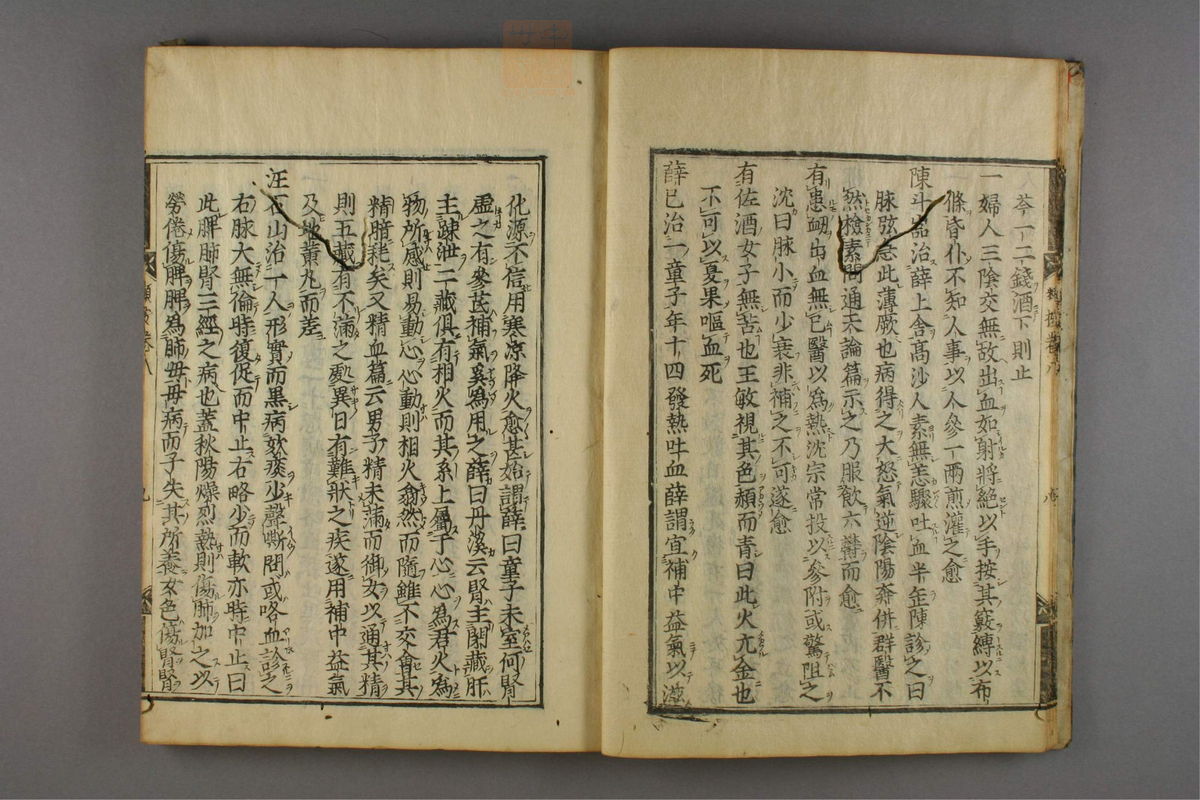 苓一二錢酒下則止
一婦人三陰交無故出血如射將絕以手按其竅縛以布
條昏仆不知人事以人參一兩煎灌之愈
陳斗嵒治薛上舍高沙人素無恙驟吐血半缶陳診之曰
脉弦急此薄厥也病得之大怒氣逆陰陽奔併群醫不
然檢素問通天論篇示之乃服飲六劑而愈
有患衂出血無已醫以為熱沈宗常投以參附或驚阻之
沈曰脉小而少衰非補之不可遂愈
有佐酒女子無苦也王敏視其色頳而青曰此火亢金也
不可以夏果嘔血死
薛已治一童子年十四發熱吐血薛謂宜補中益氣以滋
化源不信用寒凉降火愈甚始謂薛曰童子未室何腎
虛之有參芪補氣奚為用之薛曰丹溪云腎主閉藏肝
主踈泄二藏俱有相火而其系上屬于心心為君火為
物所感則易動心心動則相火翕然而隨雖不交會其
精暗耗矣又精血篇云男子精未滿而御女以通其精
則五藏有不滿之處異日有難狀之疾遂用補中益氣
及地黃丸而差
汪石山治一人形實而黑病欬痰少聲嘶間或咯血診之
右脉大無倫時復促而中止右略少而軟亦時中止曰
此脾肺腎三經之病也蓋秋陽燥烈熱則傷肺加之以
勞倦傷脾脾為肺母母病而子失其所養女色傷腎腎